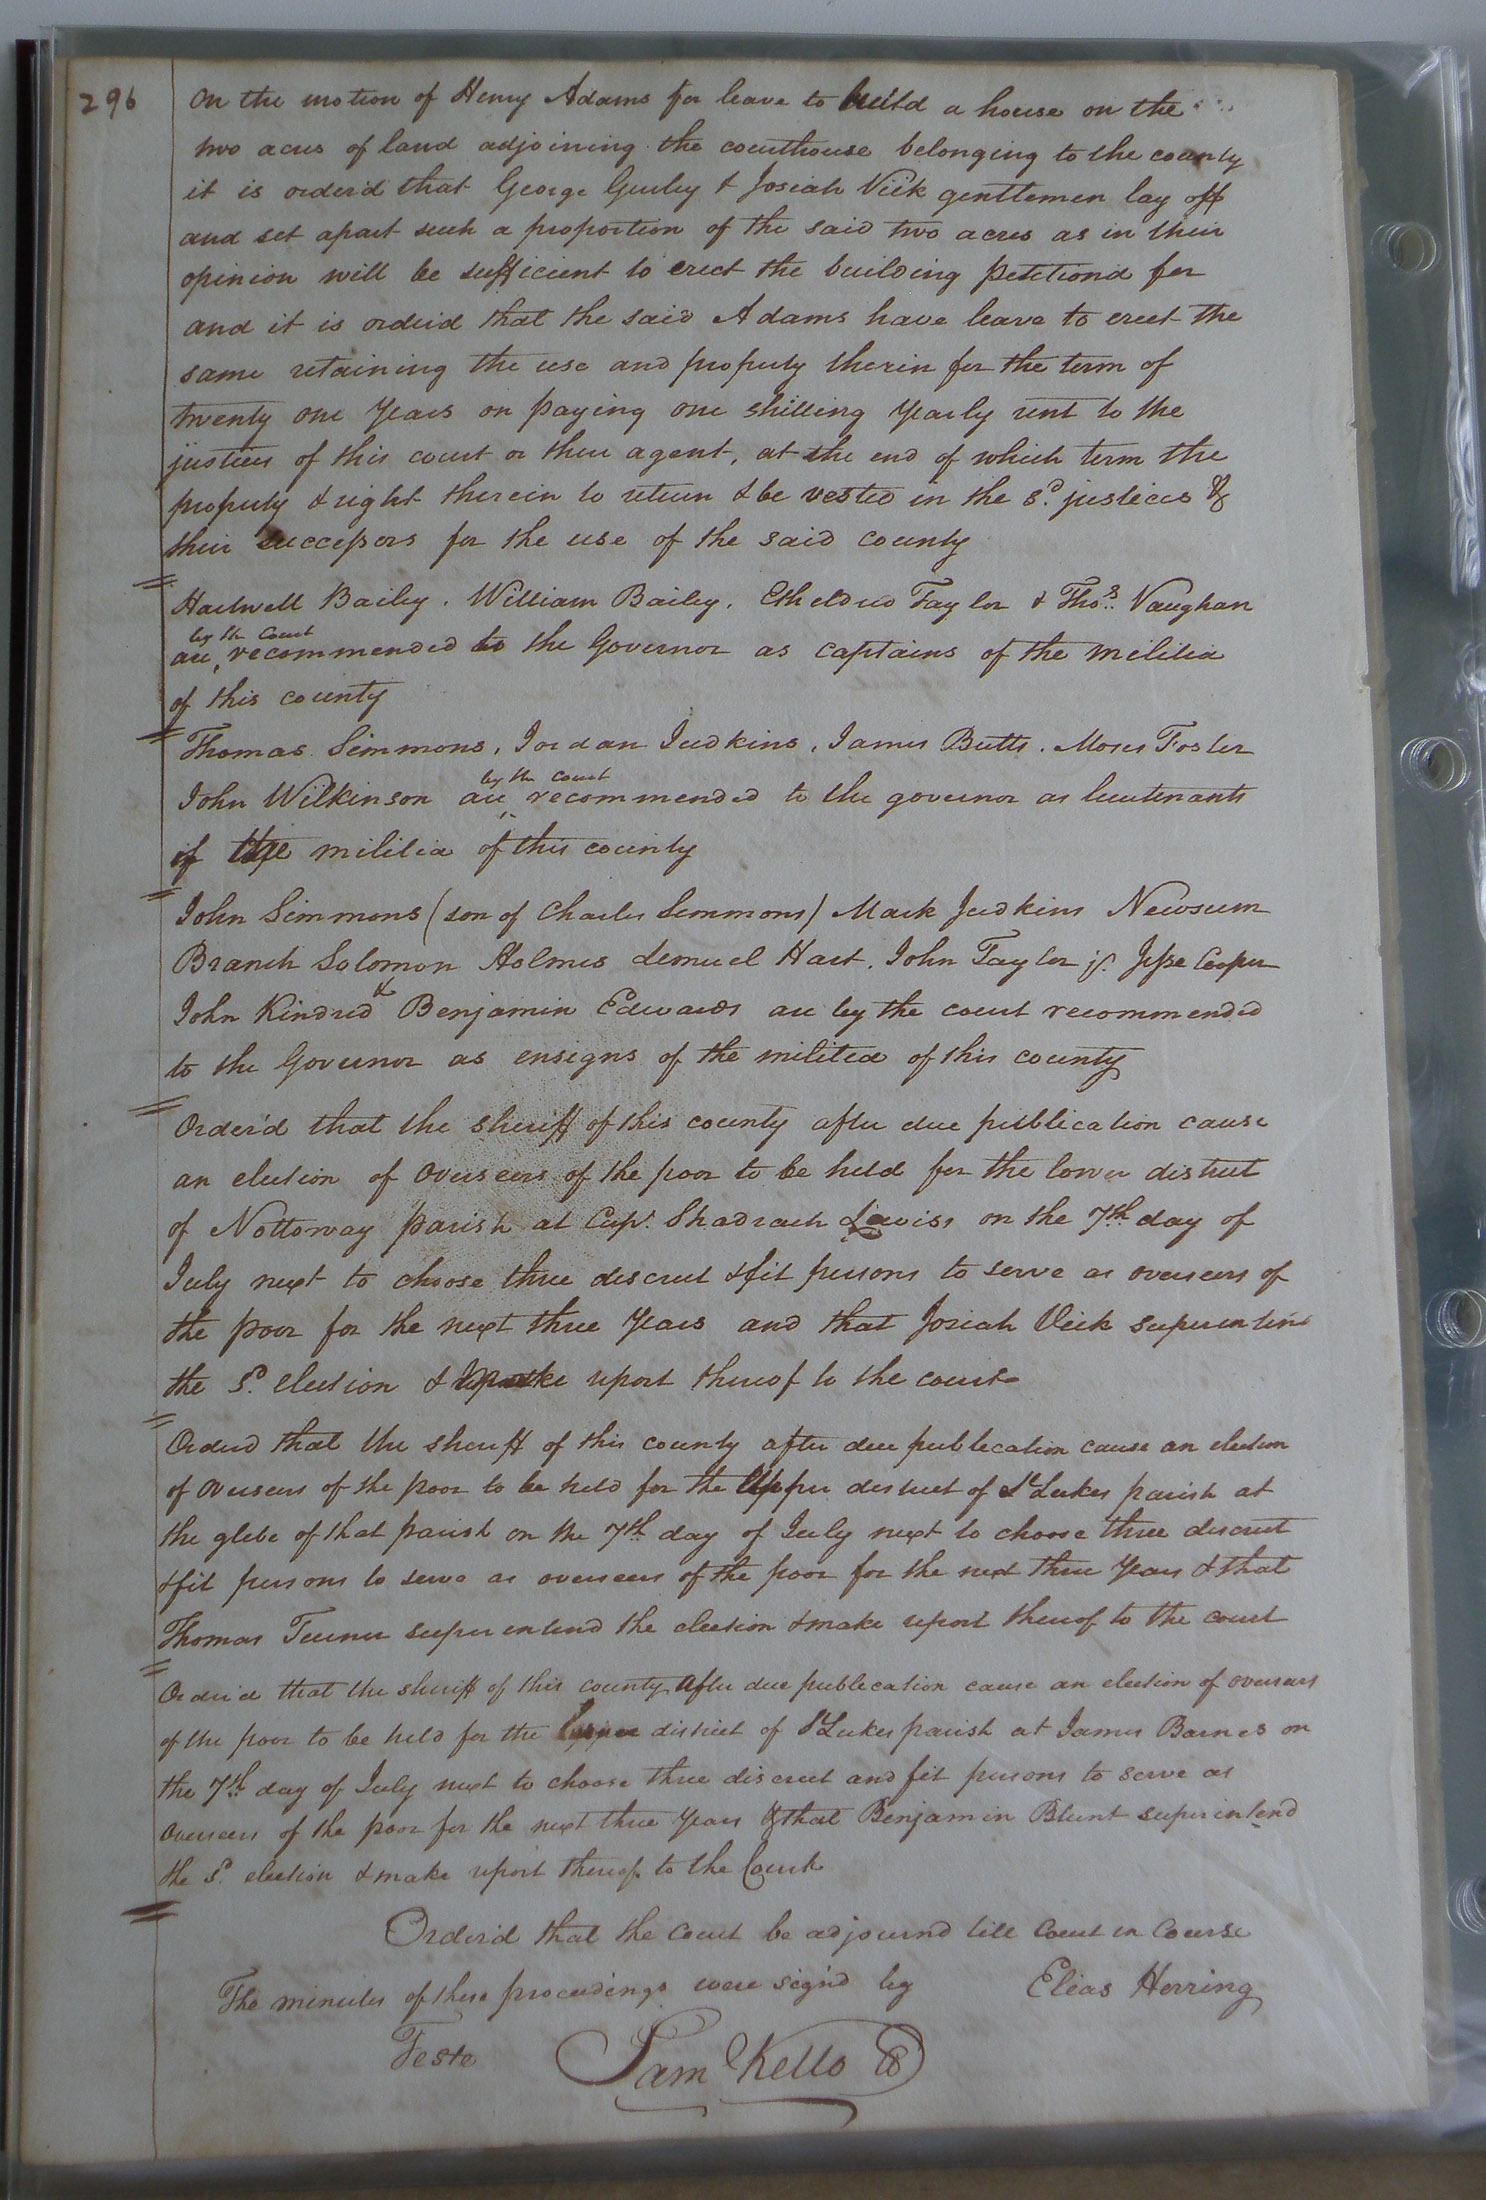 296
On the motion of Henry Adams for leave to build a house on the
two acres of land adjoining the courthouse belonging to the county
it is orderd that George Gurley & Josiah Vick gentlemen lay off
and set apart such a proportion of the said two acres as in their
opinion will be sufficient to erect the building petitiond for
and it is orderd that the said Adams have leave to erect the
same retaining the use and property therein for the term of
twenty one Years on paying one shilling Yearly rent to the
justices of this court or their agent, at the end of which term the
property & right therein to return & be vested in the sd. justices &
their successors for the use of the said county
Hartwell Bailey. William Bailey. Etheldred Taylor & Thos. Vaughan
by the Court
are recommended to the Governor as captains of the militia
of this county
Thomas Simmons, Jordan Judkins, James Butts. Moses Foster
by the court
John Wilkinson are recommended to the governor as lieutenants
of the militia of this county
John Simmons (son of Charles Simmons) Mark Judkins Newsum
Branch Solomon Holmes Lemuel Hart. John Taylor jr. Jesse Cooper
John Kindred & Benjamin Edwards are by the court recommended
to the Governor as ensigns of the militia of this county
Order'd that the sheriff of this county after due publication cause
an election of Overseers of the poor to be held for the lower district
of Nottoway parish at Cap. Shadrach Lewiss on the 7th day of
July next to choose three discreet & fit persons to serve as overseers of
the poor for the next three Years and that Josiah Vick superintend
the sd. election & make report thereof to the court
Orderd that the sheriff of this county after due publication cause an election
of Overseers of the poor to be held for the Upper district of St Lukes parish at
the glebe of that parish on the 7th day of July next to choose three discreet
& fit persons to serve as overseers of the poor for the next three Years & that
Thomas Turner superentend the election & make report thereof to the court
Order'd that the sheriff of this county after due publication cause an election of overseers
of the poor to be held for the district of St Lukes parish at James Barnes on
the 7th day of July next to choose three discreet and fit persons to serve as
overseers of the poor for the next three Years & that Benjamin Blunt superintend
the sd. election & make report thereof to the Court
Order'd that the Court be adjournd till Court in Course
The minutes of these proceedings were sign'd by Elias Herring
Teste Sam Kello